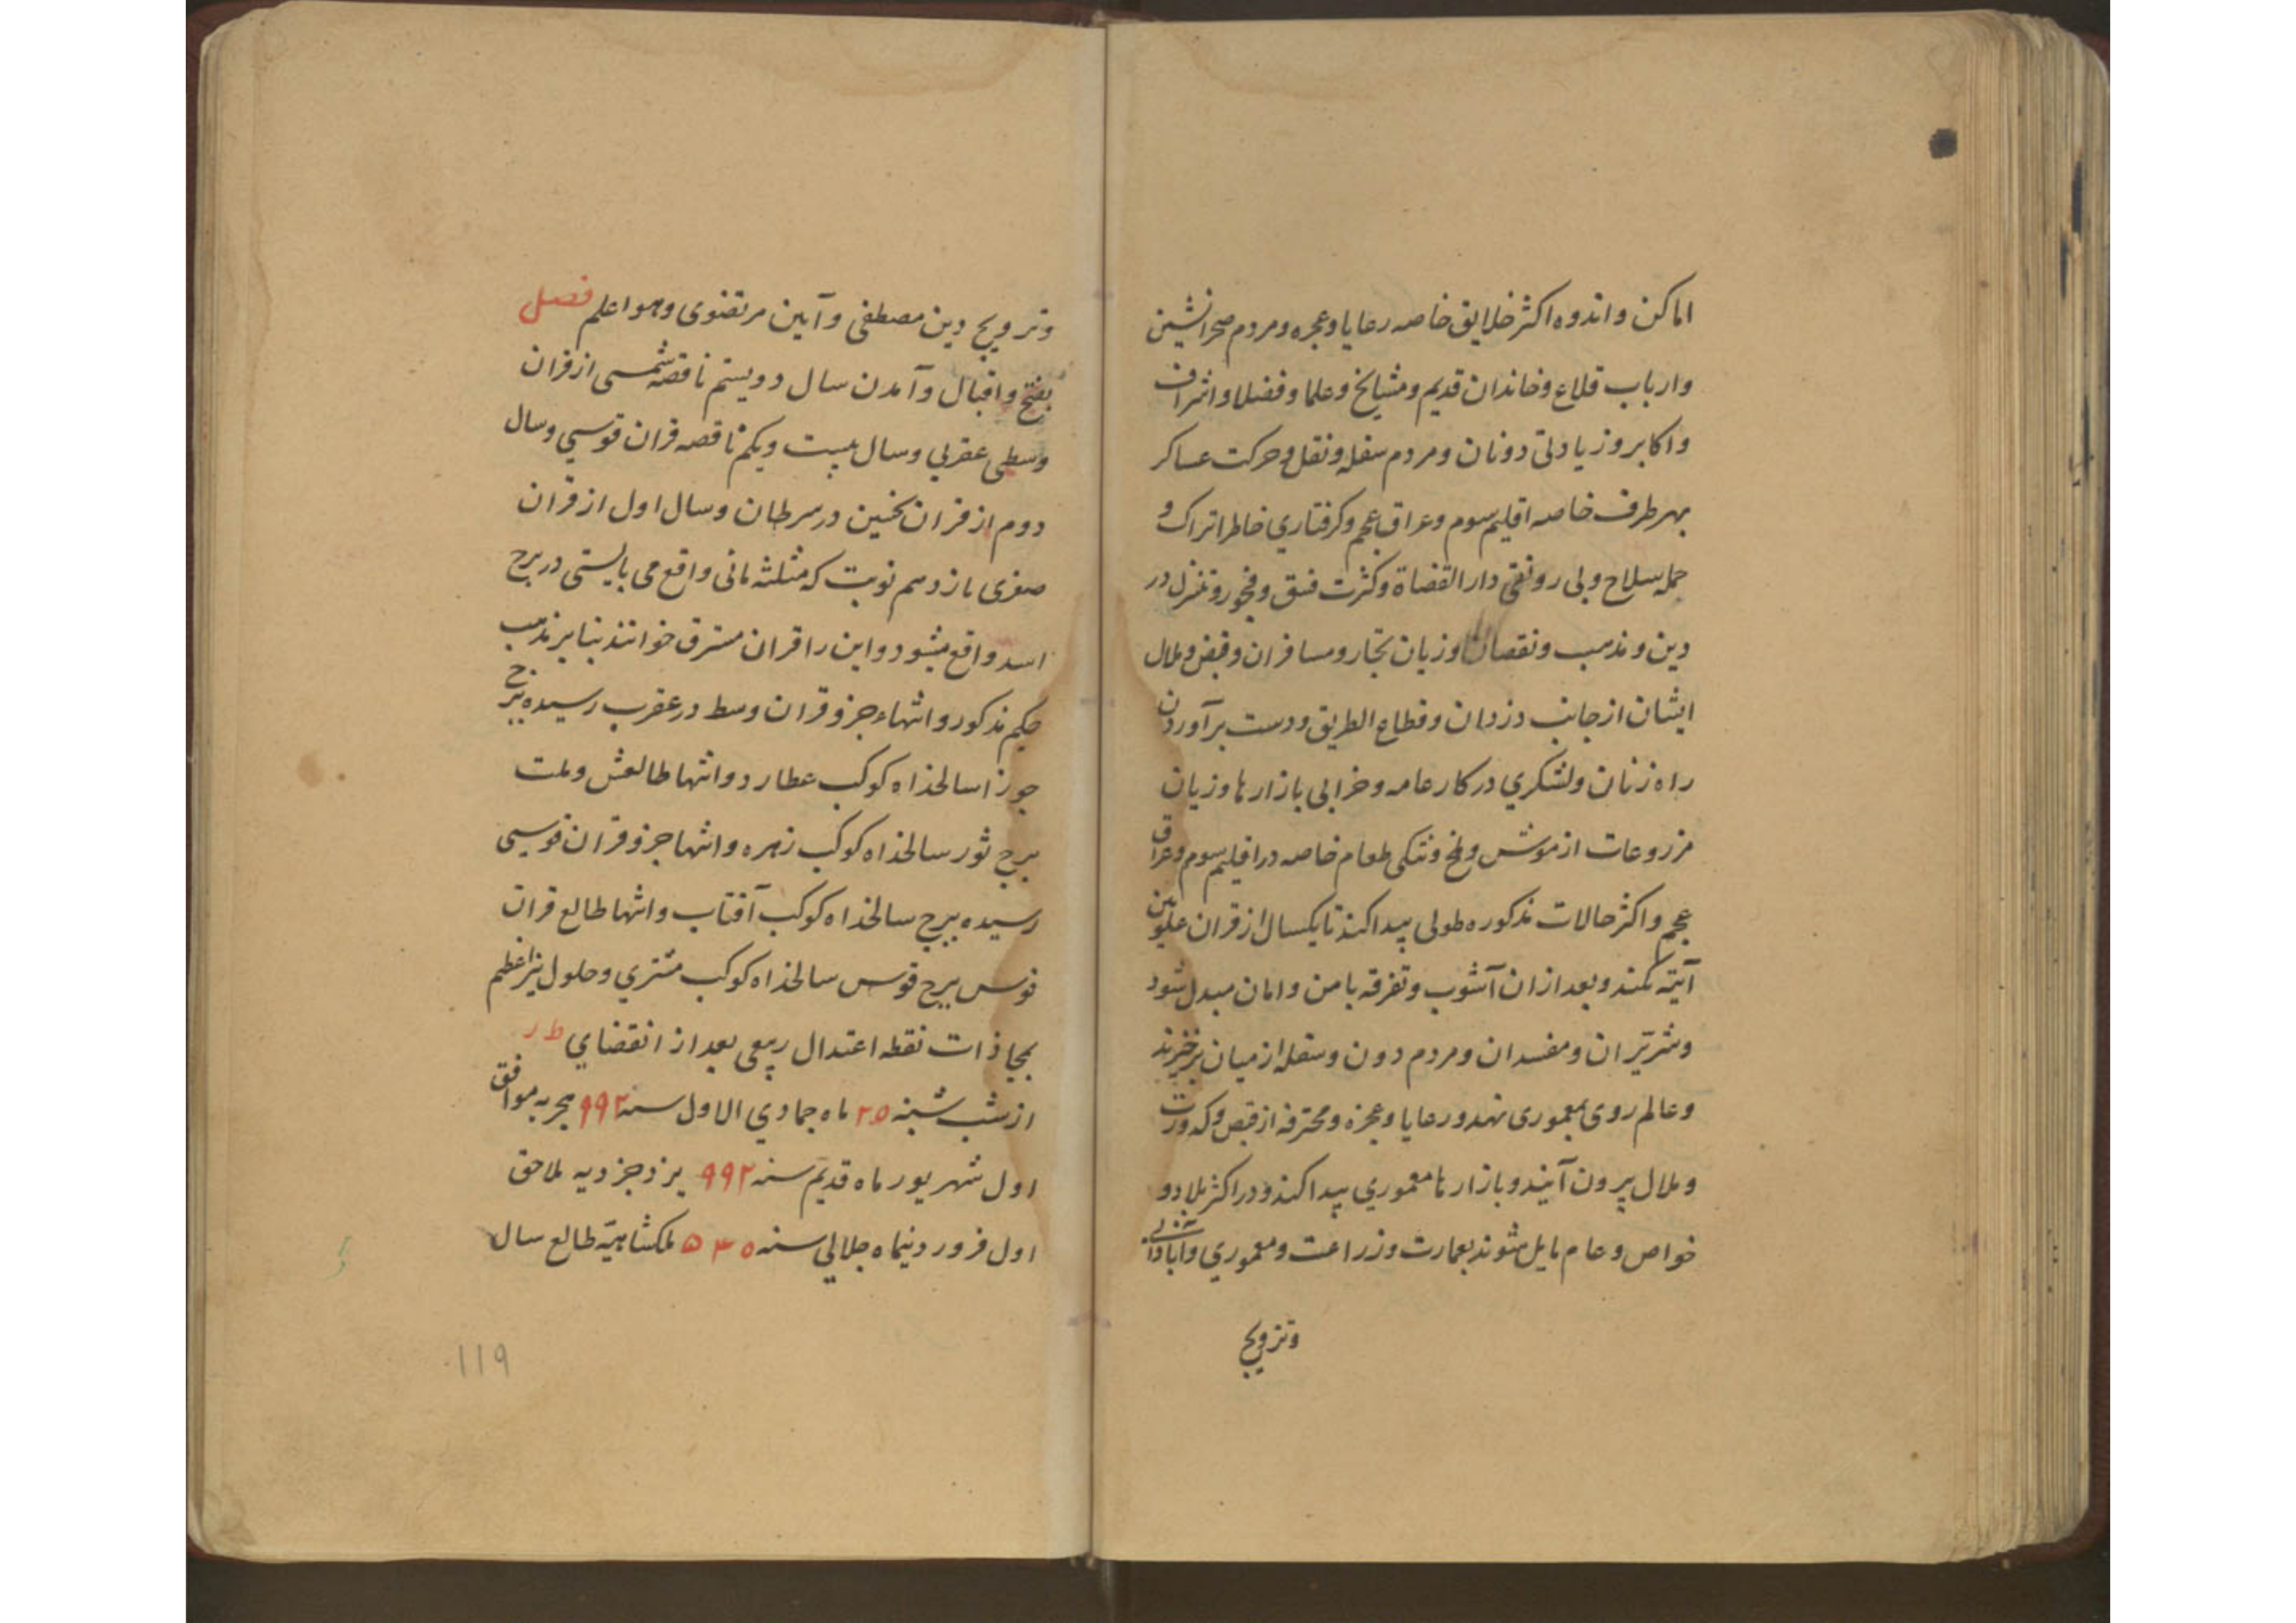 اماکن و اندوه اکثر خلایق خاصه رعایا و عجزه و مردم صحرانشین
و ارباب قلاع و خاندان قدیم و مشایخ و علما و فضلا و اشراف
و اکابر و زیادتی دونان و مردم سفله و نقل و حرکت عساکر
بهر طرف خاصه اقلیم سوم و عراق عجم و کرفتاري خاطر اتراک و
جمله سلاح و بی رونقی دار القضاة و کثرت فسق و فجور و تنزل در
دین و مذهب و نقصان و زیان تجار و مسافران و قبض و ملال
ایشان از جانب دزدان و قطاع الطریق و دست برآوردن
راه زنان و لشکري در کار عامه و خرابی بازارها و زیان
مزروعات از موش و ملخ و تنکی طعام خاصه در اقلیم سوم و عراق
عجم و اکثر حالات مذکوره طولی پیدا کند تا یکسال از قران علویین
آیته بکند و بعد از ان آشوب و تفرقه بامن و امان مبدل شود
و شریران و مفسدان و مردم دون و سفله از میان برخیزند
و عالم روی بمعموری نهد و رعایا و عجزه و محترفه از قبض و کدورت
و ملال بیرون آیند و بازارها معموري پیدا کند و در اکثر بلاد و
خواص و عام مایل شوند بعمارت و زراعت و معموري و آبادانی
و ترویج
و ترویج دین مصطفی و آیین مرتضوی و هو اعلم فصل
بفتح و اقبال و آمدن سال دویستم ناقصه شمسی از قران
وسطی عقربي و سال بیست و یکم ناقصه قران قوسي و سال
دوم از قران نحسین در سرطان و سال اول از قران
صغری یازدهم نوبت که مثلثه مائی واقع می بایستی در برج
اسد واقع میشود و این را قران مسترق خوانند بنابر مذهب
حکیم مذکور و انتهاء جزو قران وسط در عقرب رسیده ببرج
جوزا سالخذاه کوکب عطارد و انتها طالعش و ملت
ببرج ثور سالخذاه کوکب زهره و انتها جزو قران قوسی
رسیده ببرج سالخذاه کوکب آفتاب و انتها طالع قران
قوس ببرج قوس سالخذاه کوکب مشتري و حلول نیر اعظم
بمحاذات نقطه اعتدال ربیعی بعد از انقضاي ط ر
از شب شنبه ۲۵ ماه جمادي الاول سنه ۹۹۲ هجریه موافق
اول شهریور ماه قدیم سنه ۹۹۲ یزدجردیه ملاحق
اول فروردینماه جلالي سنه ۵۳۵ ملکشاهیّه طالع سال
۱۱۹